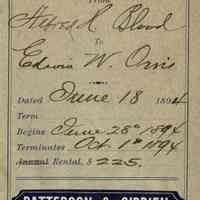 From
Alfred R Blood
To
Edwin W. Orvis
Dated June 18 1894
Term
Begins June 28th 1894
Terminates Oct 1st 1894
Annual Rental, $ 225.
PATTERSON & O'BRIEN